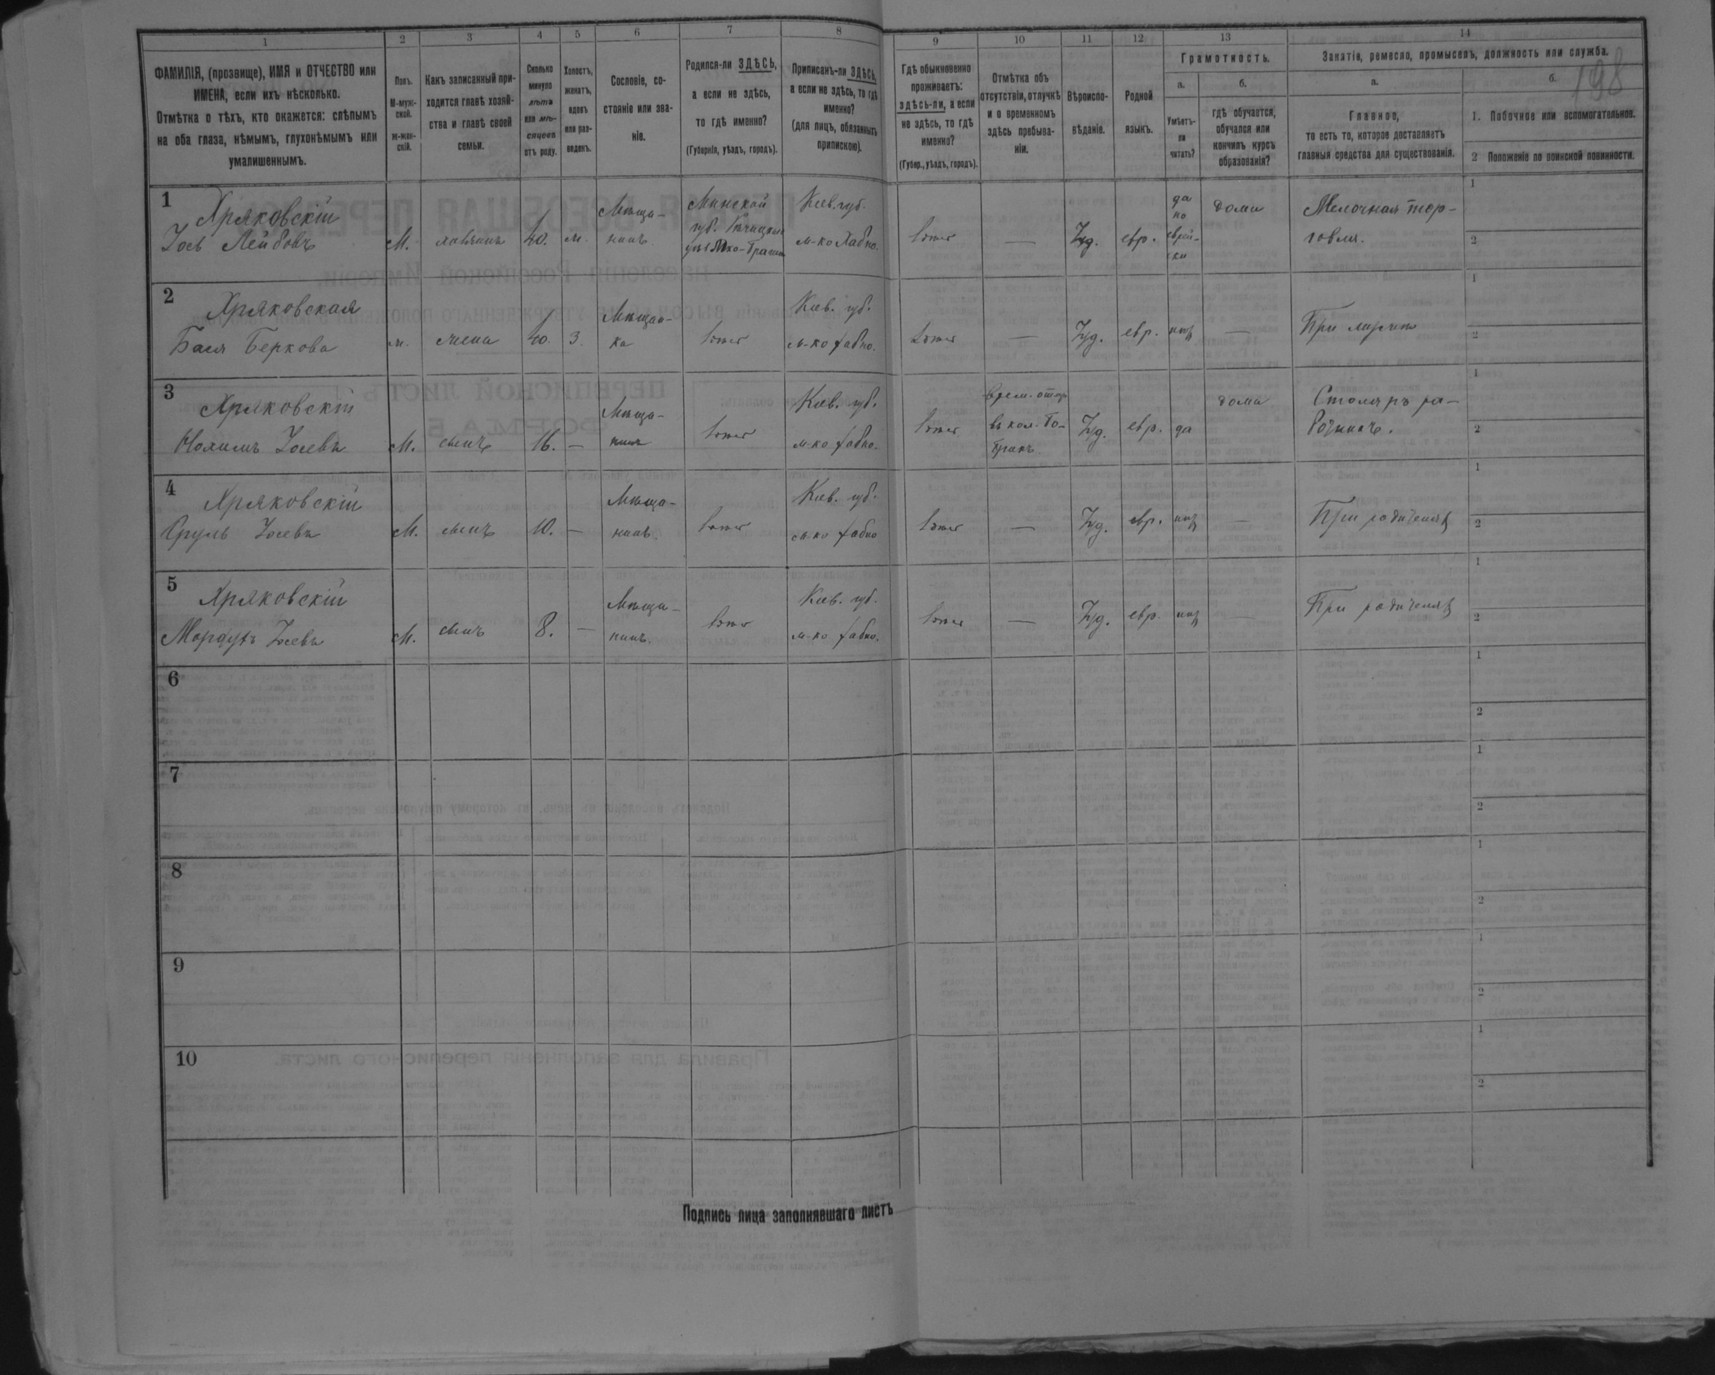 1 2 3 4 5 6 7 8 9 10 11 12 13 14
ФАМИЛІЯ, (прозвище), ИМЯ и ОТЧЕСТВО или
ИМЕНА, если ихъ нѣсколько.
Отмѣтка о тѣхъ, кто окажется: слѣпымъ
на оба глаза, нѣмымъ, глухонѣмымъ или
умалишеннымъ.
Полъ.
М-муж-
ской.
ж-жен-
скій.
Какъ записанный при-
ходится главѣ хозяй-
ства и главѣ своей
семьи.
Сколько
минуло
лѣтъ
или мѣ-
сяцевъ
отъ роду.
Холостъ,
женатъ,
вдовъ
или раз-
веденъ.
Сословіе, со-
стояніе или зва-
ніе.
Родился-ли ЗДѢСЬ,
а если не здѣсь,
то гдѣ именно?
(Губернія, уѣздъ, городъ).
Приписанъ-ли ЗДѢСЬ,
а если не здѣсь, то гдѣ
именно?
(для лицъ, обязанныхъ
припискою).
Гдѣ обыкновенно
проживаетъ:
здѣсь-ли, а если
не здѣсь, то гдѣ
именно?
(Губер., уѣздъ, городъ).
Отмѣтка объ
отсутствіи, отлучкѣ
и о временномъ
здѣсь пребыва-
ніи.
Вѣроиспо-
вѣданіе.
Родной
языкъ.
Грамотность.
а.
Умѣетъ-
ли
читать?
б.
гдѣ обучается,
обучался или
кончилъ курсъ
образованія?
Занятіе, ремесло, промыселъ, должность или служба.
а.
Главное,
то есть то, которое доставляетъ
главныя средства для существованія.
б.
198
1. Побочное или вспомогательное.
2 Положеніе по воинской повинности.
1
Хряковскій
Іось Лейбовъ
М. хозяинъ 40. ж.
Мѣща-
нинъ
Минской
губ.
Кіев. губ.
м-ко Хабно.
здѣсь — Іуд. евр.
да
по
еврей-
ски
дома
Мелочная тор-
говля.
1
2
2
Хряковская
Бася Беркова
ж. жена 40. З.
Мѣщан-
ка
здѣсь
Кіев. губ.
м-ко Хабно.
здѣсь — Іуд. евр. нѣтъ —
При мужѣ
1
2
3
Хряковскій
Нохимъ Іосевъ
М. сынъ 16. —
Мѣща-
нинъ
здѣсь
Кіев. губ.
м-ко Хабно.
здѣсь
въ кол.
Іуд. евр. да
дома
Столяръ ра-
бочій.
1
2
4
Хряковскій
Сруль Іосевъ
М. сынъ 10. —
Мѣща-
нинъ.
здѣсь
Кіев. губ.
м-ко Хабно
здѣсь — Іуд. евр. нѣтъ —
При родителяхъ
1
2
5
Хряковскій
Мордухъ Іосевъ
М. сынъ 8. —
Мѣща-
нинъ.
здѣсь
Кіев. губ.
м-ко Хабно.
здѣсь — Іуд. евр. нѣтъ —
При родителяхъ
1
2
6
1
2
7
1
2
8
1
2
9
1
2
10
1
2
Подпись лица заполнявшаго листъ